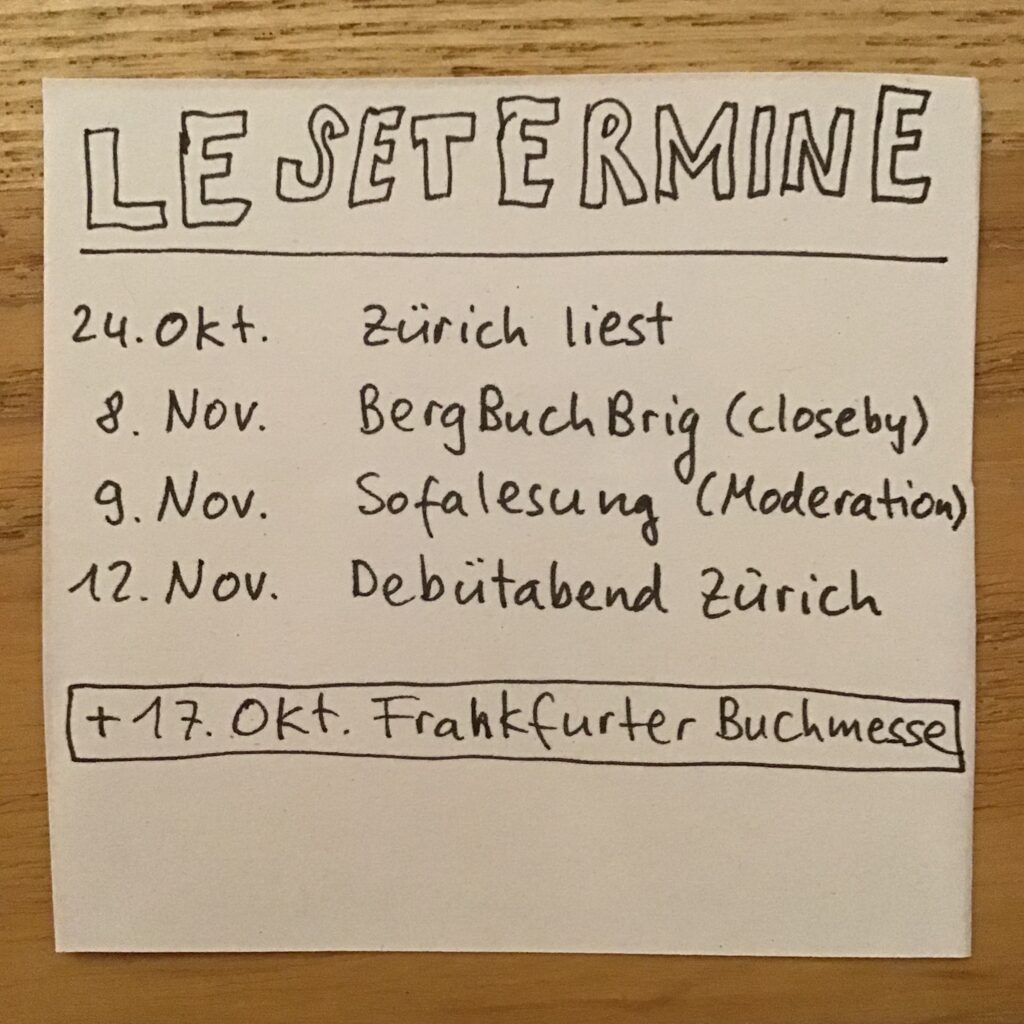 LESETERMINE
24. Okt. Zürich liest
8. Nov. BergBuchBrig (closeby)
9. Nov. Sofalesung (Moderation)
12. Nov. Debütabend Zürich
+ 17. Okt. Frankfurter Buchmesse